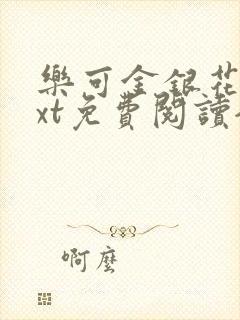 樂可金銀花
xt免費閱讀
啊麼